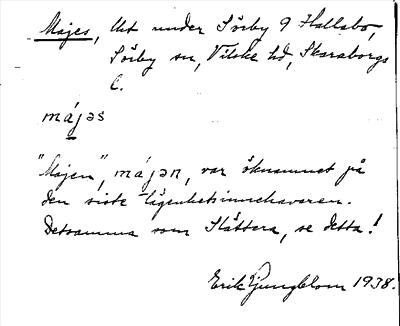 Majes, lht under Sörby 9 Hallabo,
Sörby sn, Vilske hd, Skaraborgs
l.
májəs
"Majen", májən, var öknamnet på
den siste lägenhetsinnehavaren.
Detsamma som Slättera, se detta!
Erik Ljungblom 1938.